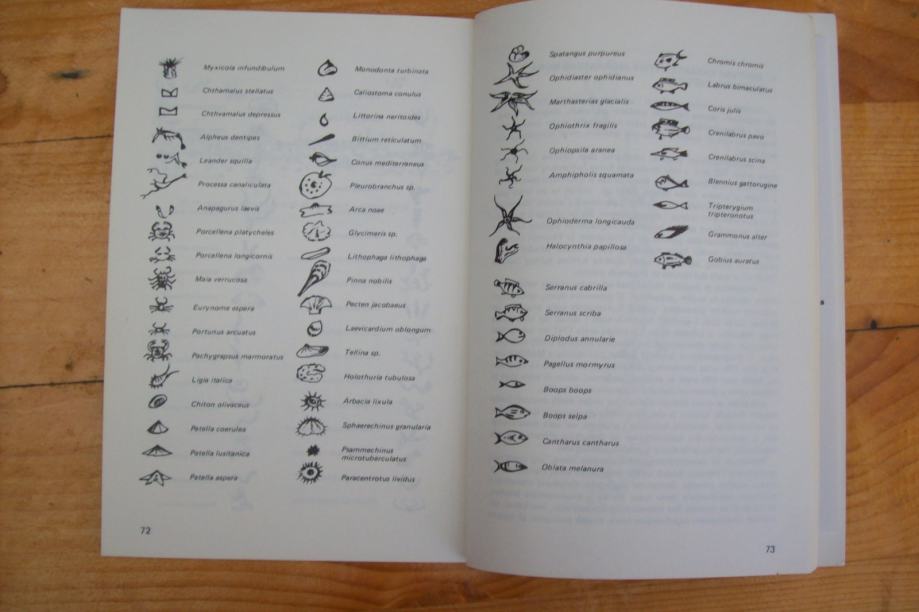 Myxicola infundibulum
Chthamalus stellatus
Chthvamalus depressus
Alpheus dentipes
Leander squilla
Processa canaliculata
Anapagurus laevis
Porcellena platycheles
Porcellena longicornis
Maia verrucosa
Eurynome aspera
Portunus arcuatus
Pachygrapsus marmoratus
Ligia italica
Chiton olivaceus
Patella coerulea
Patella lusitanica
Patella aspera
Monodonta turbinata
Caliostoma conulus
Littorina neritoides
Bittium reticulatum
Conus mediterraneus
Pleurobranchus sp.
Arca noae
Glycimeris sp.
Lithophaga lithophaga
Pinna nobilis
Pecten jacobaeus
Laevicardium oblongum
Tellina sp.
Holothuria tubulosa
Arbacia lixula
Sphaerechinus granularis
Psammechinus
microtuberculatus
Paracentrotus lividus
72
Spatangus purpureus
Ophidiaster ophidianus
Marthasterias glacialis
Ophiothrix fragilis
Ophiopsila aranea
Amphipholis squamata
Ophioderma longicauda
Halocynthia papillosa
Serranus cabrilla
Serranus scriba
Diplodus annularie
Pagellus mormyrus
Boops boops
Boops selpa
Cantharus cantharus
Oblata melanura
Chromis chromis
Labrus bimaculatus
Coris julis
Crenilabrus pavo
Crenilabrus scina
Blennius gattorugine
Tripterygium
tripteronotus
Grammonus alter
Gobius auratus
73